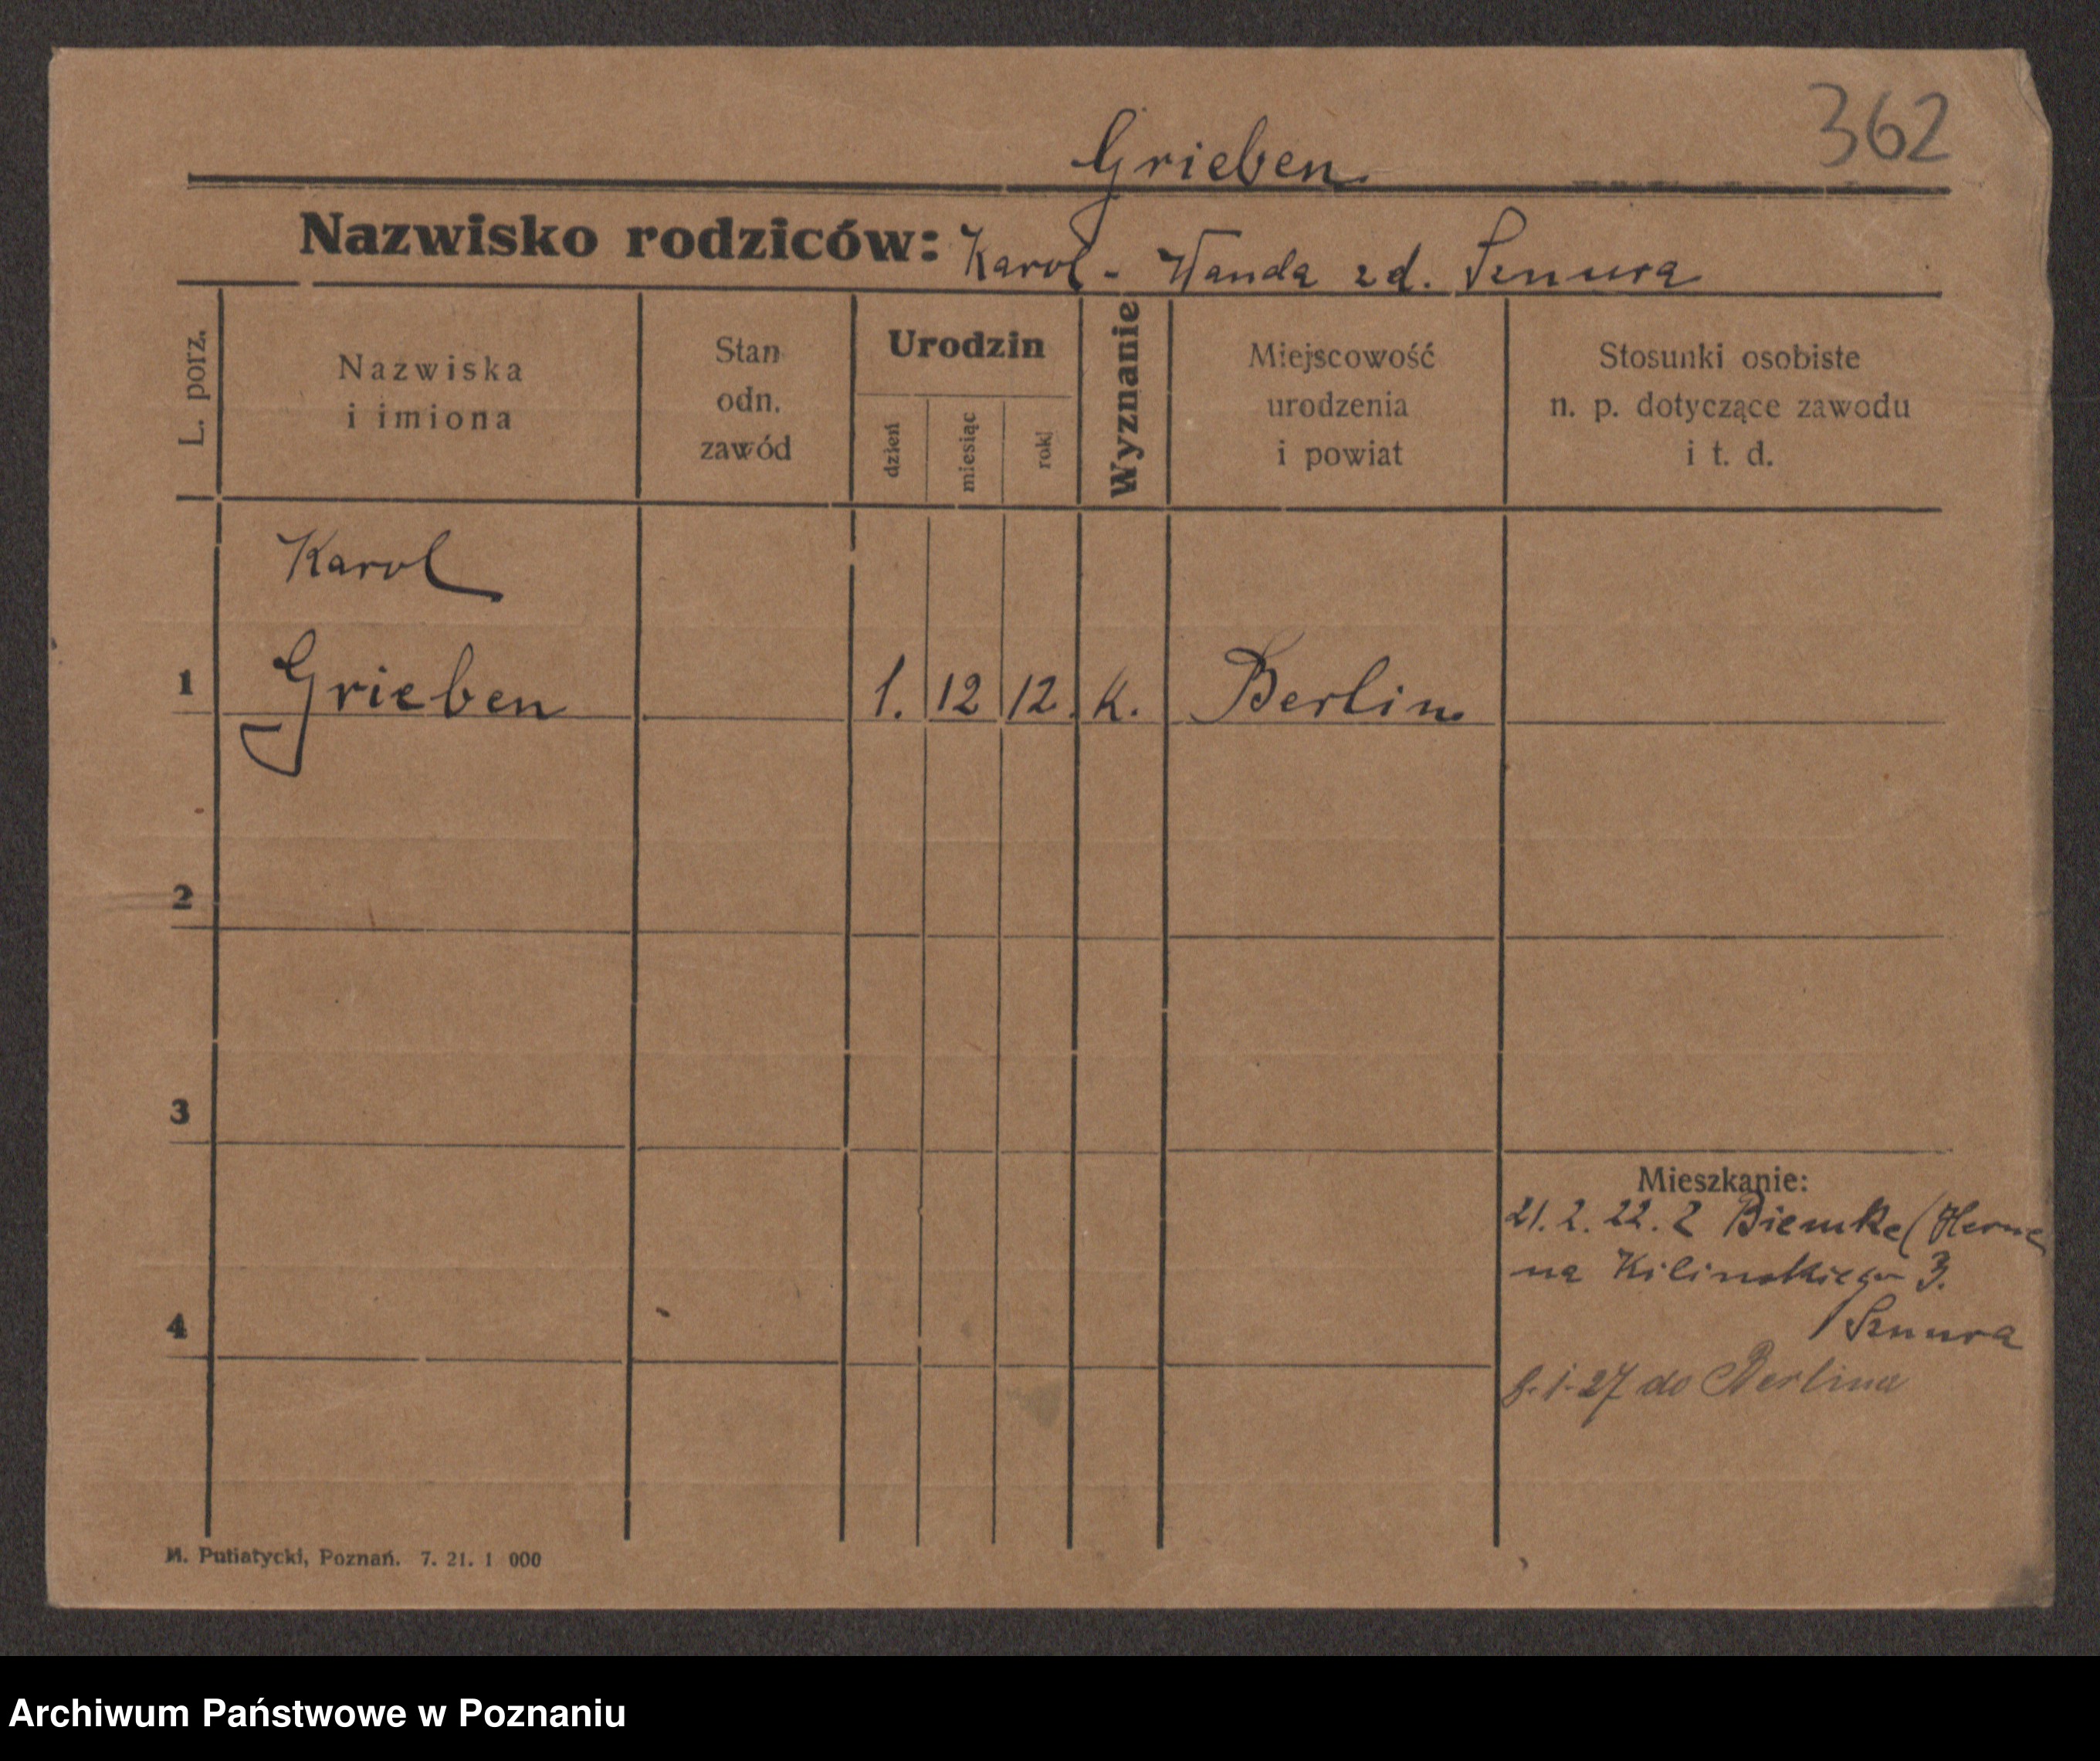 362
Grieben
Nazwisko rodziców: Karol - Wanda zd. Sznura
L. porz.
Nazwiska
i imiona
Stan
odn.
zawód
Urodzin
dzień
miesiąc
rok
Wyznanie
Miejscowość
urodzenia
i powiat
Stosunki osobiste
n. p. dotyczące zawodu
i t. d.
Karol
1 Grieben 1. 12 12. k. Berlin
2
3
Mieszkanie:
21. 2. 22. z Biemke (Herne
na Kilinskiego 3.
/ Sznura
4
8-1-27 do Berlina
M. Putiatycki, Poznań. 7. 21. 1 000
Archiwum Państwowe w Poznaniu